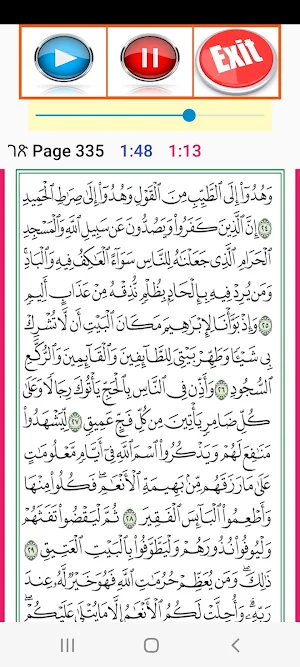 Exit
ገጽ Page 335 1:48 1:13
وَهُدُوٓا۟ إِلَى ٱلطَّيِّبِ مِنَ ٱلْقَوْلِ وَهُدُوٓا۟ إِلَىٰ صِرَٰطِ ٱلْحَمِيدِ
٢٤ إِنَّ ٱلَّذِينَ كَفَرُوا۟ وَيَصُدُّونَ عَن سَبِيلِ ٱللَّهِ وَٱلْمَسْجِدِ
ٱلْحَرَامِ ٱلَّذِى جَعَلْنَٰهُ لِلنَّاسِ سَوَآءً ٱلْعَٰكِفُ فِيهِ وَٱلْبَادِ ۚ
وَمَن يُرِدْ فِيهِ بِإِلْحَادٍۭ بِظُلْمٍ نُّذِقْهُ مِنْ عَذَابٍ أَلِيمٍ
٢٥ وَإِذْ بَوَّأْنَا لِإِبْرَٰهِيمَ مَكَانَ ٱلْبَيْتِ أَن لَّا تُشْرِكْ
بِى شَيْـًٔا وَطَهِّرْ بَيْتِىَ لِلطَّآئِفِينَ وَٱلْقَآئِمِينَ وَٱلرُّكَّعِ
ٱلسُّجُودِ ٢٦ وَأَذِّن فِى ٱلنَّاسِ بِٱلْحَجِّ يَأْتُوكَ رِجَالًا وَعَلَىٰ
كُلِّ ضَامِرٍ يَأْتِينَ مِن كُلِّ فَجٍّ عَمِيقٍ ٢٧ لِّيَشْهَدُوا۟
مَنَٰفِعَ لَهُمْ وَيَذْكُرُوا۟ ٱسْمَ ٱللَّهِ فِىٓ أَيَّامٍ مَّعْلُومَٰتٍ
عَلَىٰ مَا رَزَقَهُم مِّنۢ بَهِيمَةِ ٱلْأَنْعَٰمِ ۖ فَكُلُوا۟ مِنْهَا
وَأَطْعِمُوا۟ ٱلْبَآئِسَ ٱلْفَقِيرَ ٢٨ ثُمَّ لْيَقْضُوا۟ تَفَثَهُمْ
وَلْيُوفُوا۟ نُذُورَهُمْ وَلْيَطَّوَّفُوا۟ بِٱلْبَيْتِ ٱلْعَتِيقِ ٢٩
ذَٰلِكَ وَمَن يُعَظِّمْ حُرُمَٰتِ ٱللَّهِ فَهُوَ خَيْرٌ لَّهُۥ عِندَ
رَبِّهِۦ ۗ وَأُحِلَّتْ لَكُمُ ٱلْأَنْعَٰمُ إِلَّا مَا يُتْلَىٰ عَلَيْكُمْ ۖ